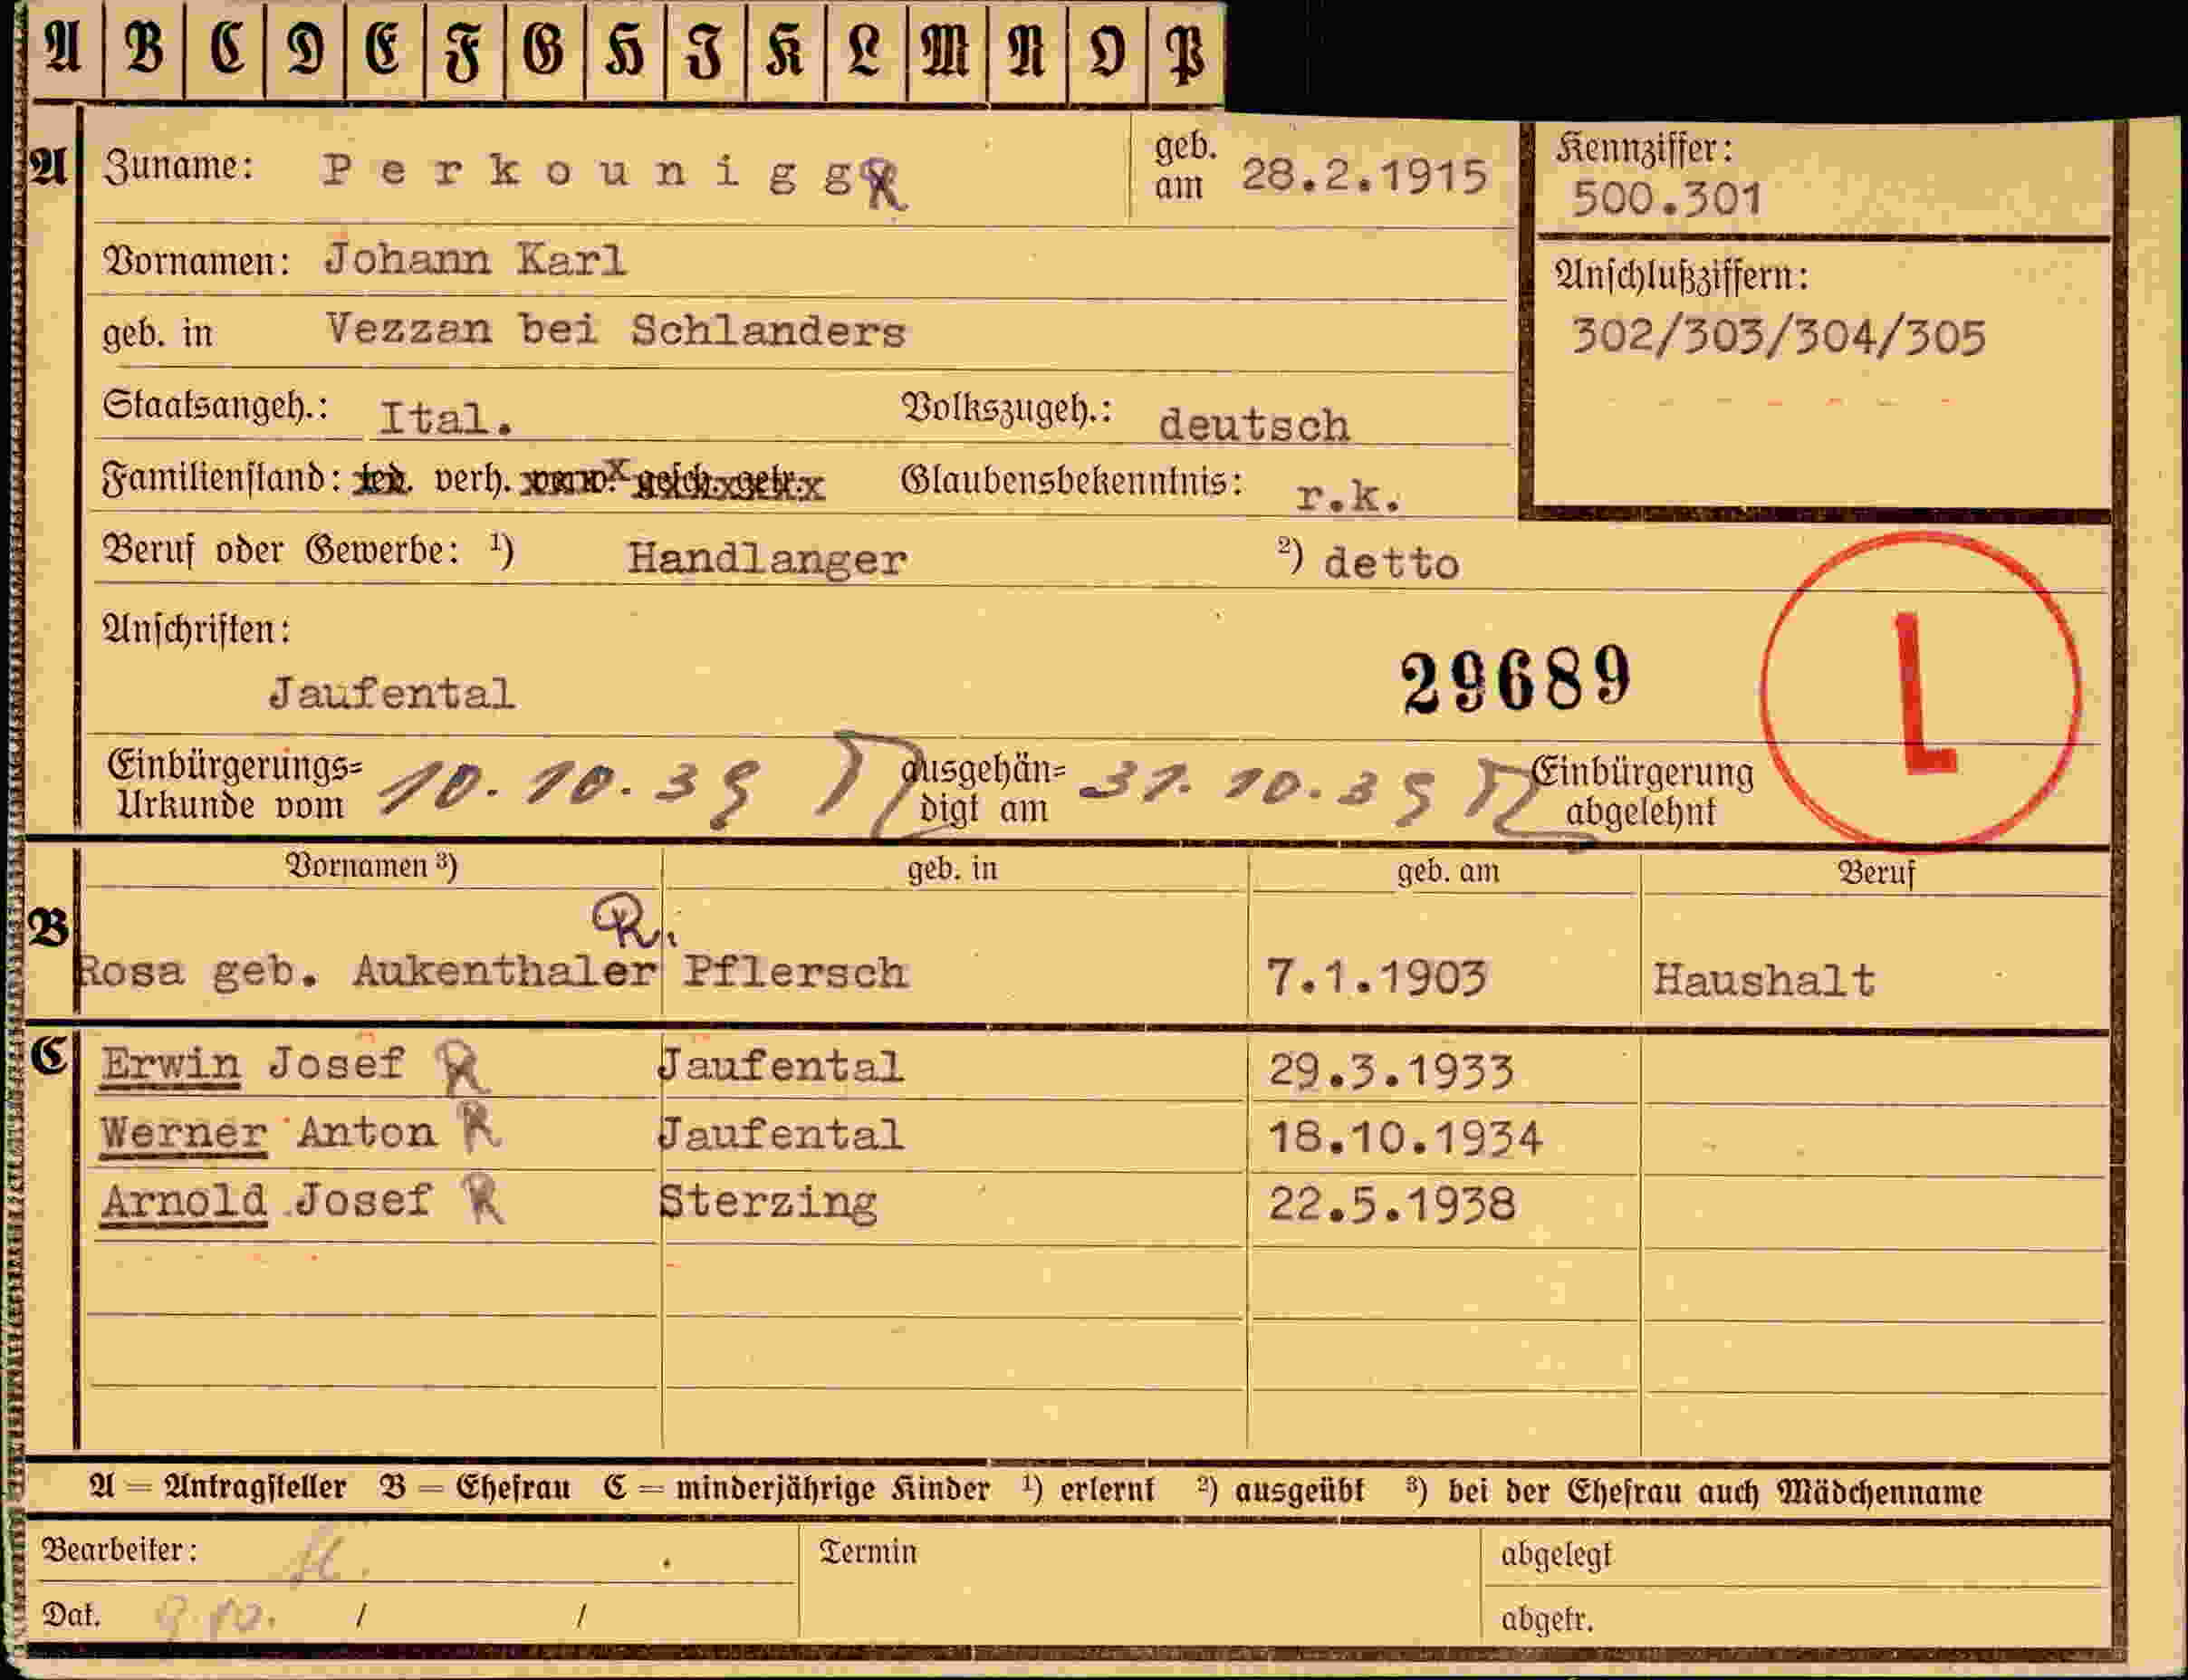 A B C D E F G H I K L M N O P
A Zuname: Perkounigg R geb. am 28.2.1915 Kennziffer: 500.301
Vornamen: Johann Karl
geb. in Vezzan bei Schlanders
Anschlußziffern:
302/303/304/305
Staatsangeh.: Ital. Volkszugeh.: deutsch
Familienstand: led. verh. verw. gesch. getr. Glaubensbekenntnis: r.k.
Beruf oder Gewerbe: ¹) Handlanger ²) detto
Anschriften:
Jaufental 29689 L
Einbürgerungs= ausgehän= Einbürgerung
Urkunde vom 10.10.39 digt am 31.10.39 abgelehnt
Vornamen ³) geb. in geb. am Beruf
R.
B Rosa geb. Aukenthaler Pflersch 7.1.1903 Haushalt
C Erwin Josef R Jaufental 29.3.1933
Werner Anton R Jaufental 18.10.1934
Arnold Josef R Sterzing 22.5.1938
A = Antragsteller B = Ehefrau C = minderjährige Kinder ¹) erlernt ²) ausgeübt ³) bei der Ehefrau auch Mädchenname
Bearbeiter: Termin abgelegt
Dat. 9.10. / / abgetr.